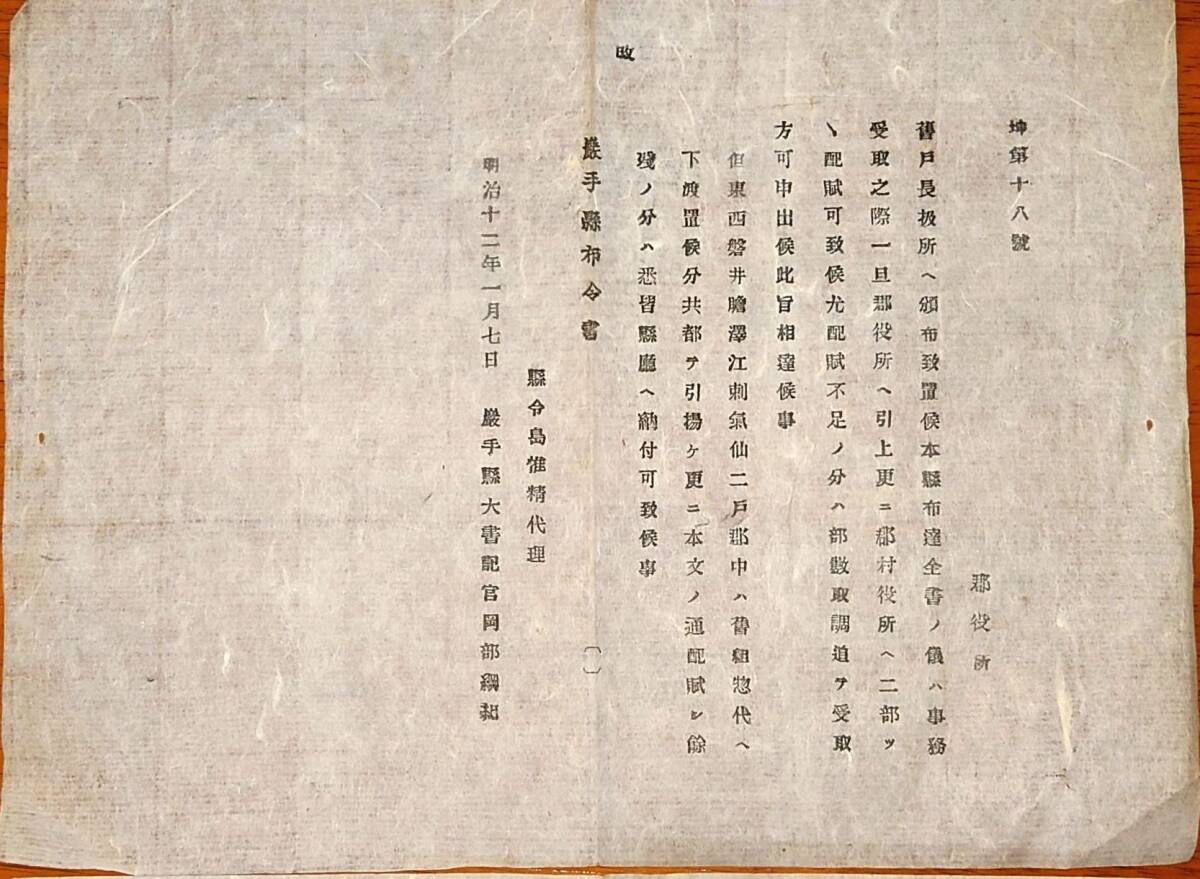 坤第十八號
郡役所
舊戸長扱所ヘ頒布致置候本縣布達全書ノ儀ハ事務
受取之際一旦郡役所ヘ引上更ニ郡村役所ヘ二部ツ
ヽ配賦可致候尤配賦不足ノ分ハ部數取調追テ受取
方可申出候此旨相達候事
但東西磐井膽澤江刺氣仙二戸郡中ハ舊組惣代ヘ
下渡置候分共都テ引揚ケ更ニ本文ノ通配賦シ餘
殘ノ分ハ悉皆縣廳ヘ納付可致候事
巖手縣布令書
〔〕
縣令島惟精代理
明治十二年一月七日 巖手縣大書記官岡部綱紀